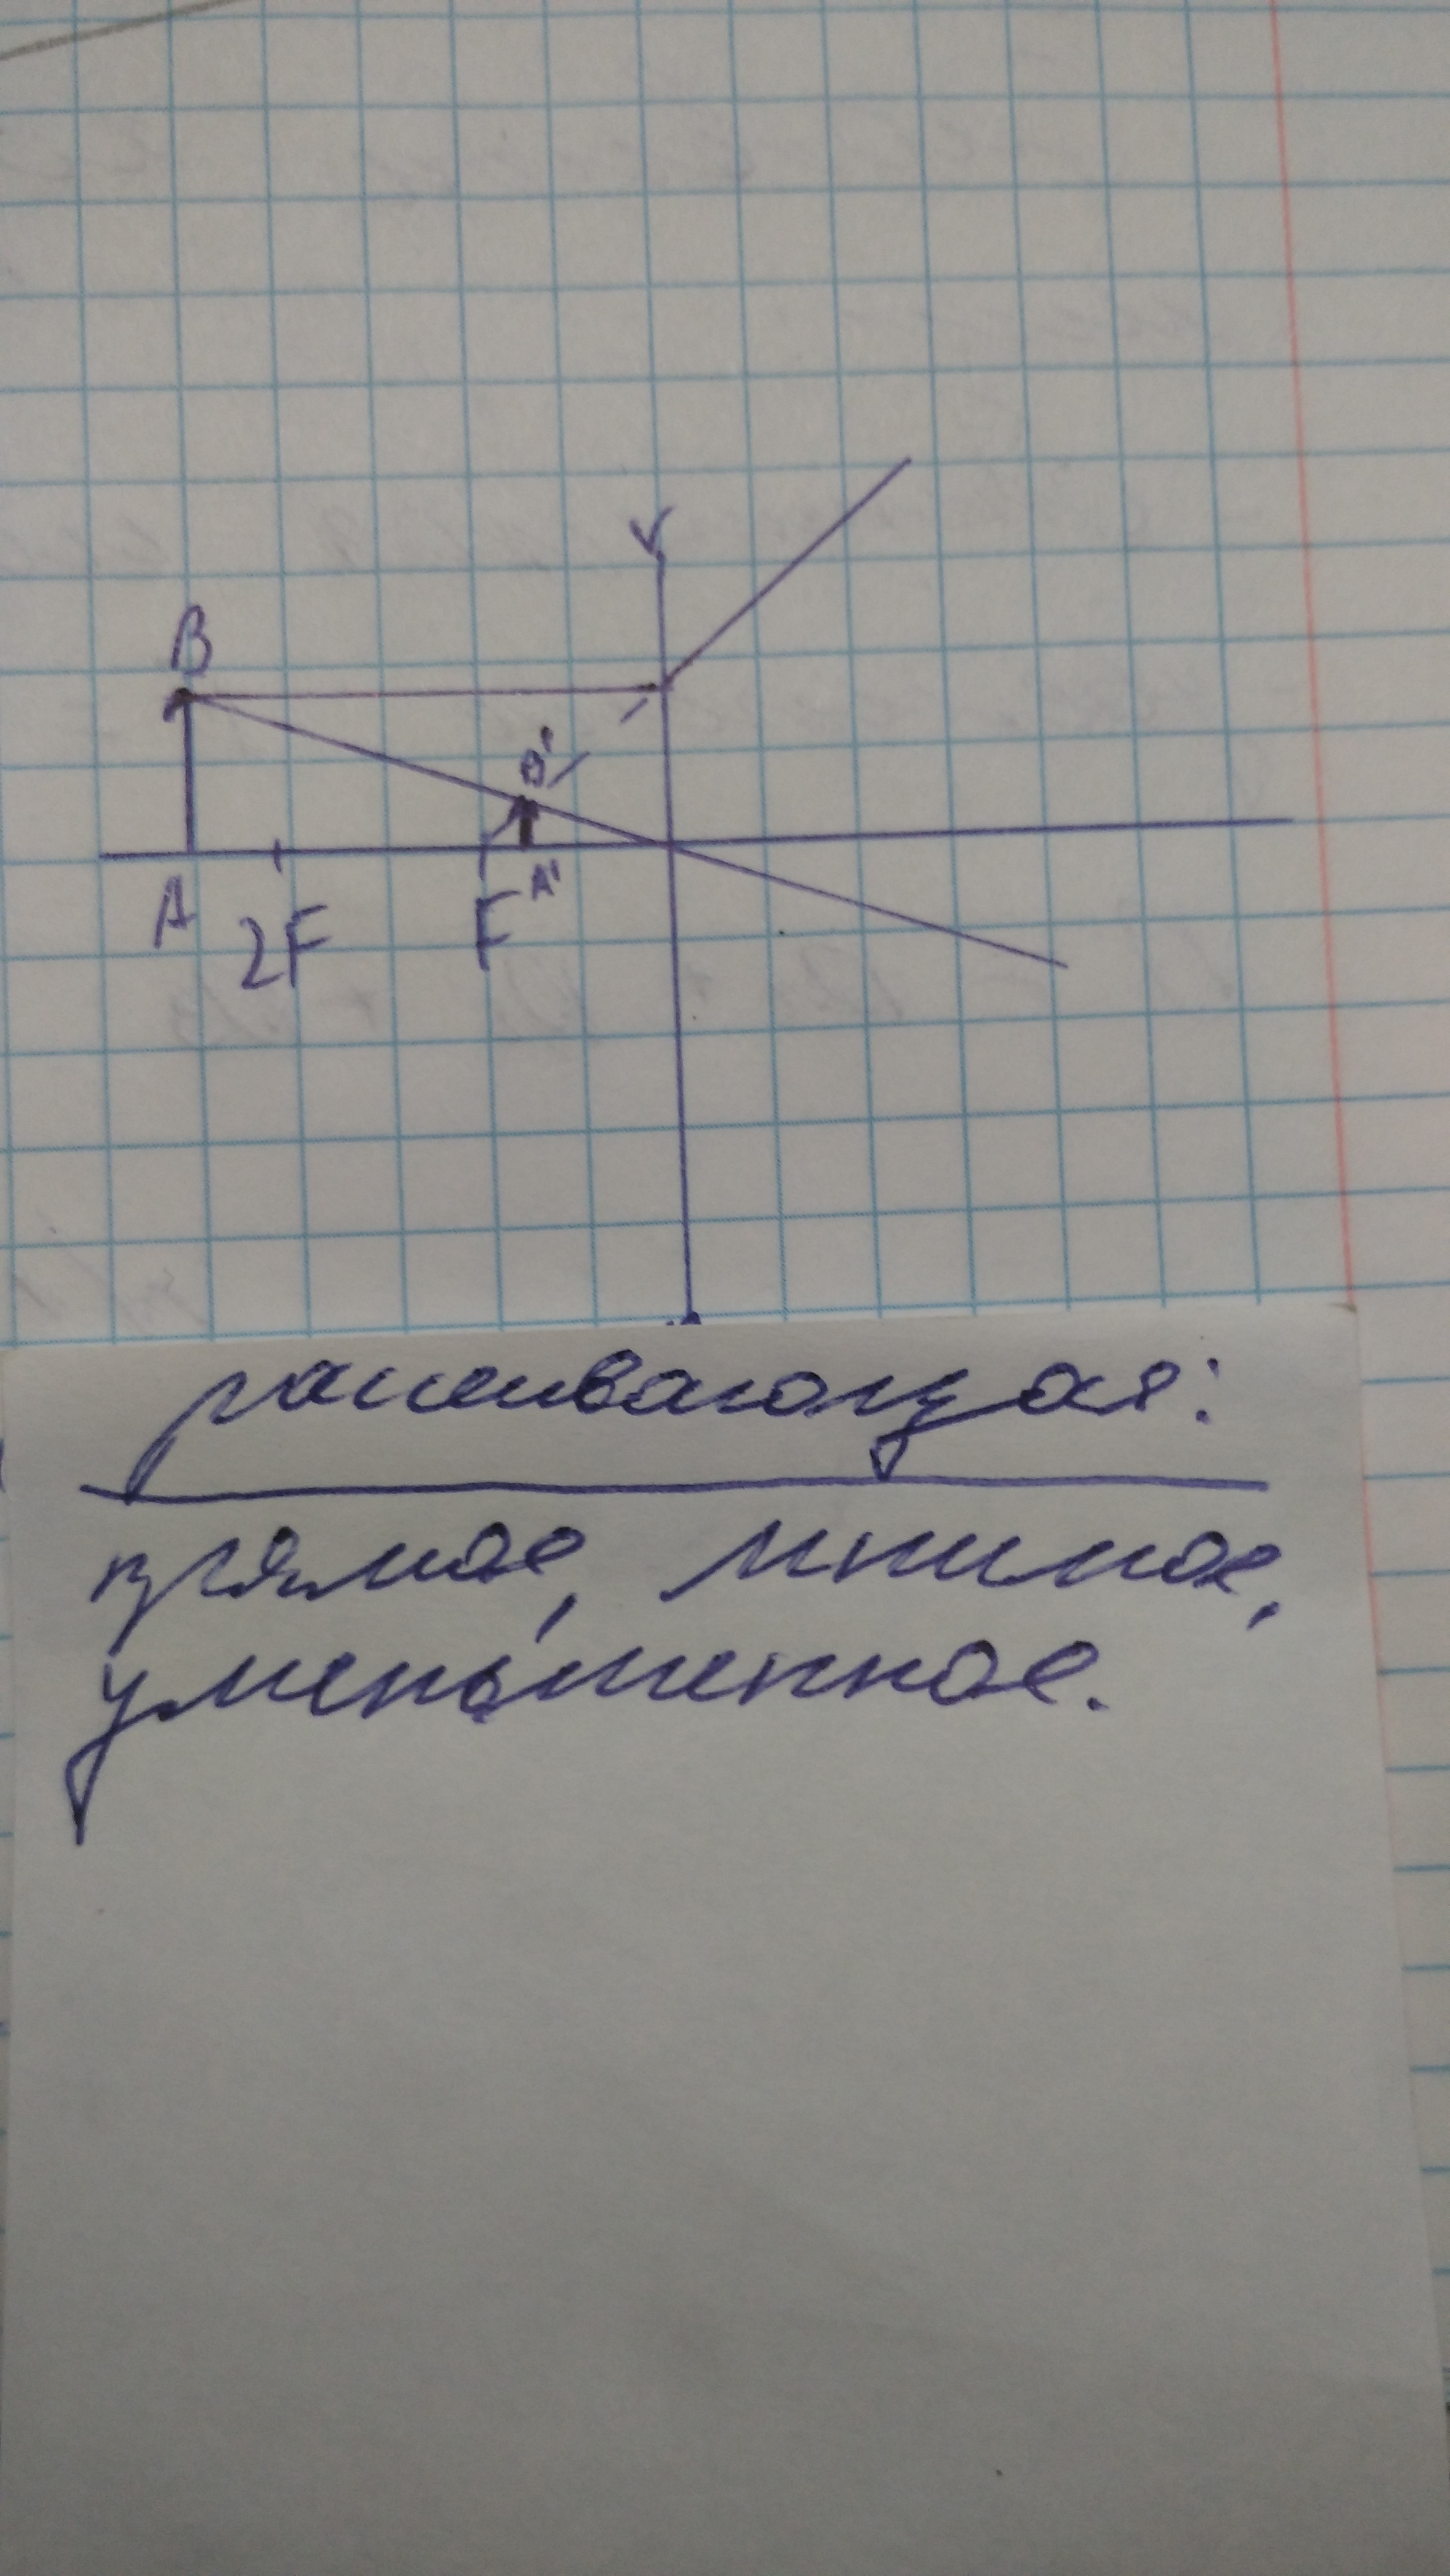 B
B'
A'
A
2F
F
рассеивающая:
прямое, мнимое,
уменьшенное.